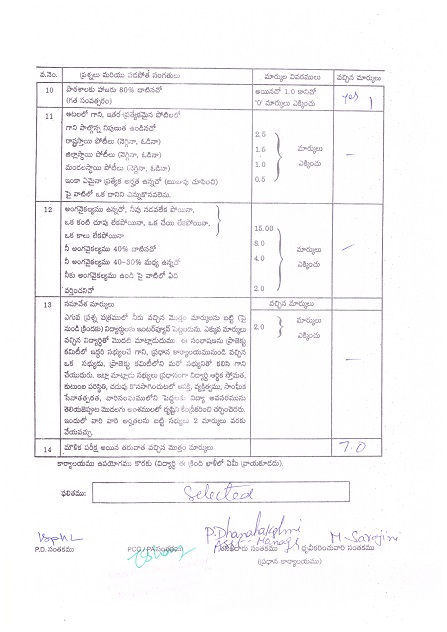 వ.నెం. ప్రశ్నలు మరియు సదరోత సంగతులు మార్కుల వివరములు వచ్చిన మార్కులు
10 పాఠశాలకు హాజరు 80% దాటినచో అయినచో 1.0 కానిచో yes 1
(గత సంవత్సరం) '0' మార్కులు ఎక్కించు
11 ఆటలలో గాని, ఇతర ప్రత్యేకమైన పోటీలలో
గాని పాల్గొన్న నిపుణత ఉండినచో
రాష్ట్రస్థాయి పోటీలు (నెగ్గినా, ఓడినా) 2.5
జిల్లాస్థాయి పోటీలు (నెగ్గినా, ఓడినా) 1.5 మార్కులు –
మండలస్థాయి పోటీలు (నెగ్గినా, ఓడినా) 1.0 ఎక్కించు
ఇంకా ఏమైనా ప్రత్యేక అర్హత ఉన్నచో (ఋజువు చూపించి) 0.5
పై వాటిలో ఒక దానిని ఎన్నుకొనవలెను.
12 అంగవైకల్యము ఉన్నచో, నీవు నడవలేక పోయినా,
ఒక కంటి చూపు లేకపోయినా, ఒక చేయి లేకపోయినా,
ఒక కాలు లేకపోయినా 15.00
నీ అంగవైకల్యము 40% దాటినచో 8.0 మార్కులు –
నీ అంగవైకల్యము 40-30% మధ్య ఉన్నచో 4.0 ఎక్కించు
నీకు అంగవైకల్యము ఉండి పై వాటిలో ఏది
వర్తించనిచో 2.0
13 సమావేశ మార్కులు వచ్చిన మార్కులు
ఎగువ ప్రశ్న పత్రములో నీకు వచ్చిన మొత్తం మార్కులను బట్టి (పై
నుండి క్రిందకు) విద్యార్థులను ఇంటర్వ్యూకై పెట్టబడును. ఎక్కువ మార్కులు 2.0 మార్కులు
వచ్చిన విద్యార్థితో మొదట మాట్లాడుదుము. ఈ సంభాషణను ప్రాజెక్టు ఎక్కించు
కమిటీలో ఇద్దరి సభ్యులచే గాని, ప్రధాన కార్యాలయమునుండి వచ్చిన
ఒక సభ్యుడు, ప్రాజెక్టు కమిటీలోని మరో సభ్యునితో కలిసి గాని
చేయుదురు. ఇట్లా మాట్లాడు సభ్యులు ప్రధానంగా విద్యార్థి ఆర్థిక స్తోమత, –
కుటుంబ పరిస్థితి, చదువు కొనసాగించుటలో ఆసక్తి, వ్యక్తిత్వము, సాంఘిక
సేవాతత్పరత, వారి
విద్యా అవసరమును
తెలియజెప్పుట మొదలగు అంశములలో దృష్టిని కేంద్రీకరించి చర్చించెదరు.
ఇందులో వారి వారి అర్హతలను బట్టి సభ్యులు 2 మార్కులు వరకు
వేయవచ్చు.
14 మౌలిక పరీక్ష అయిన తరువాత వచ్చిన మొత్తం మార్కులు 7.0
కార్యాలయము ఉపయోగము కొరకు (విద్యార్థి ఈ క్రింది ఖాళీలో ఏమీ వ్రాయకూడదు).
ఫలితము: Selected
P. Dhanalakshmi M. Sarojini
P.D. సంతకము సంతకము సంతకము ధృవీకరించువారి సంతకము
(ప్రధాన కార్యాలయము)